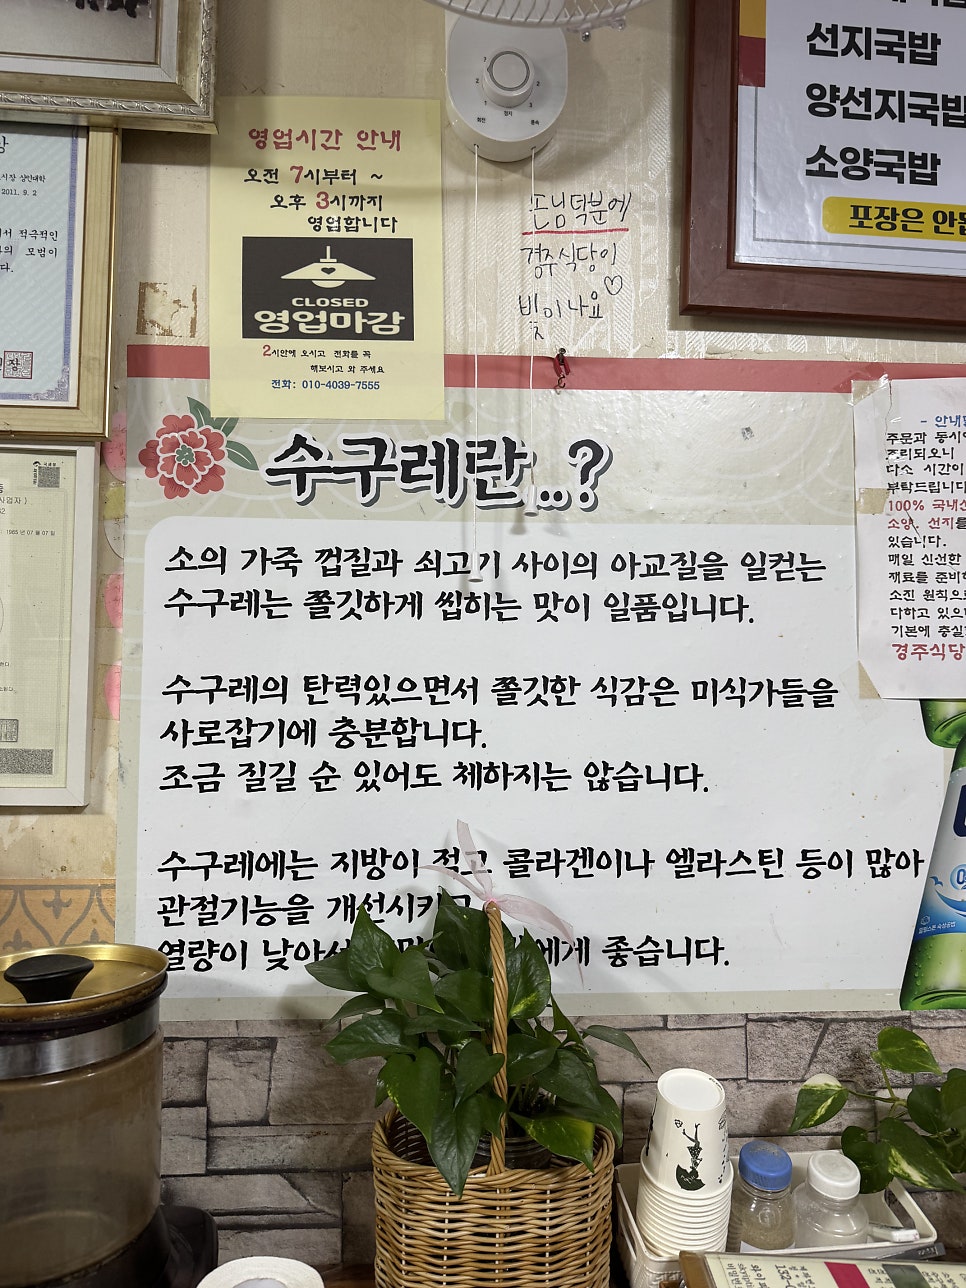 선지국밥
양선지국밥
소양국밥
포장은 안
영업시간 안내
오전 7시부터 ~
오후 3시까지
영업합니다
CLOSED
영업마감
2시안에 오시고 전화를 꼭
해보시고 와 주세요
전화: 010-4039-7555
손님덕분에
경주식당이
빛이나요♡
2011. 9. 2
서 적극적인
의 모범이
다.
수구레란...?
소의 가죽 껍질과 쇠고기 사이의 아교질을 일컫는
수구레는 쫄깃하게 씹히는 맛이 일품입니다.
수구레의 탄력있으면서 쫄깃한 식감은 미식가들을
사로잡기에 충분합니다.
조금 질길 순 있어도 체하지는 않습니다.
수구레에는 지방이 적고 콜라겐이나 엘라스틴 등이 많아
관절기능을 개선시키고
열량이 낮아서 에게 좋습니다.
- 안내
주문과 동시에
조리되오니
다소 시간이
부탁드립니다
100% 국내산
소양, 선지를
있습니다.
매일 신선한
재료를 준비하
소진 원칙으로
다하고 있으
기본에 충실
경주식당